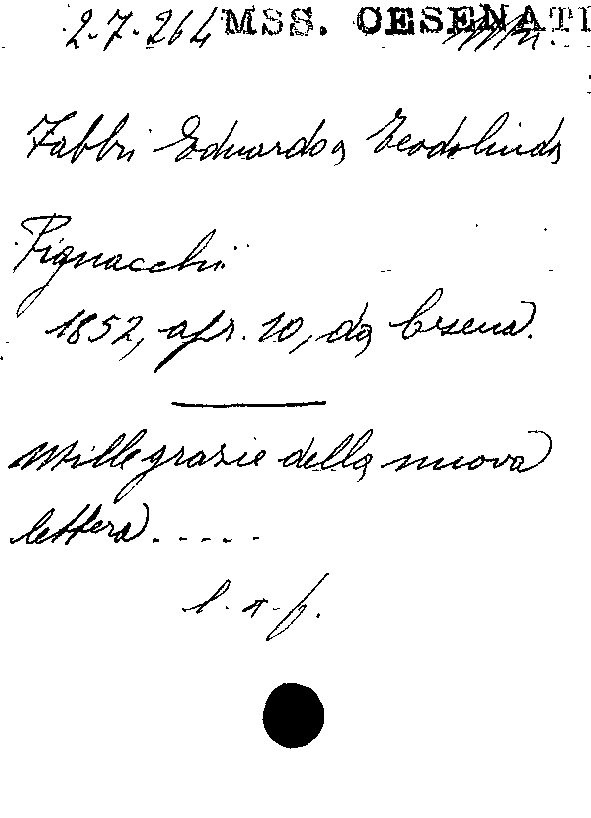 2.7.264 MSS. CESENATI
Fabbri Eduardo a Teodolinda
Pignacchi
1852, apr. 10, da Cesena.
Mille grazie della nuova
lettera.....
l. a. f.